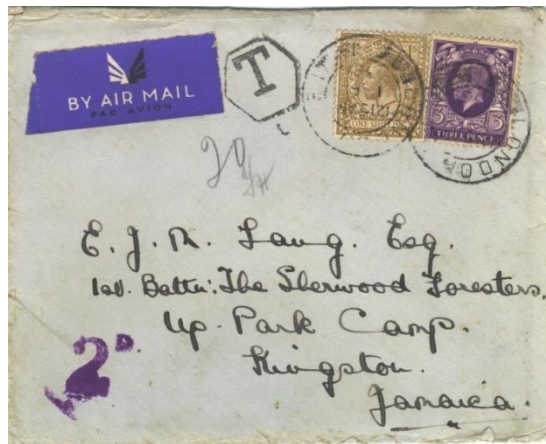 BY AIR MAIL
PAR AVION
T
ONE SHILLING
THREE PENCE
LONDON
20
E. J. M. Lang. Esq.
1st. Battn: The Sherwood Foresters.
Up. Park Camp.
Kingston.
Jamaica.
2D.